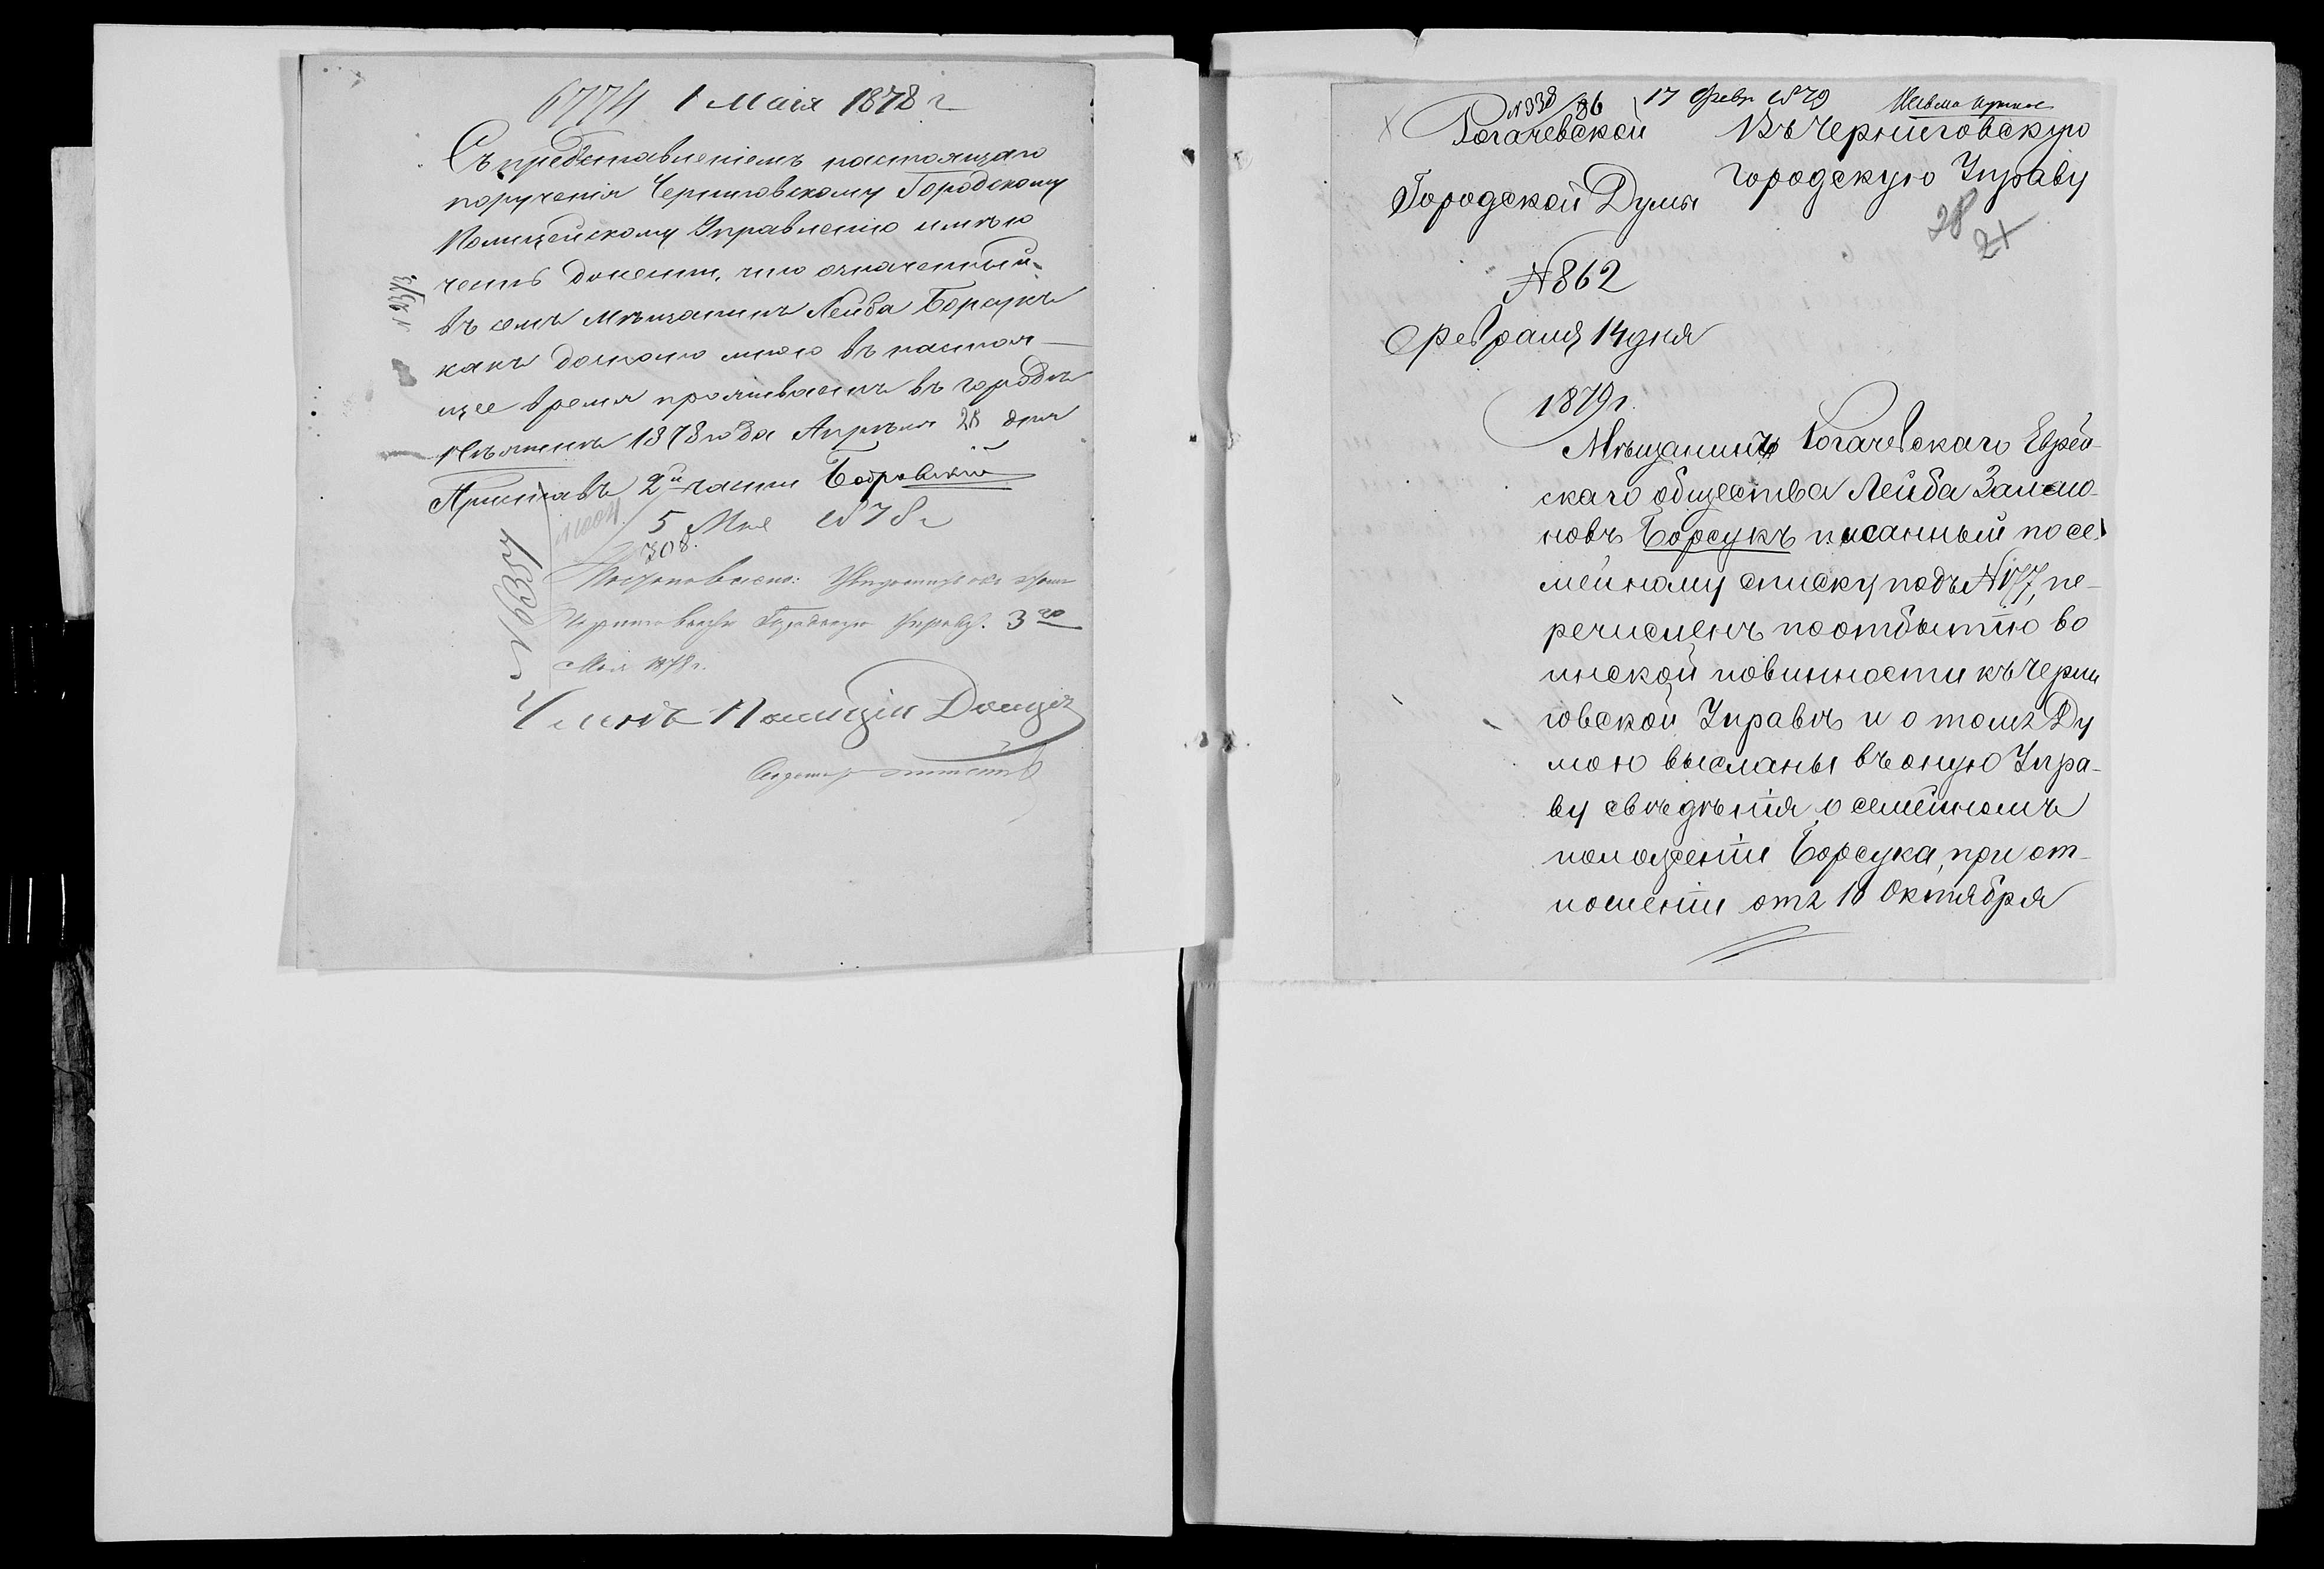 6774 1 Мая 1878 г
Съ представленіемъ настоящаго
порученія Черниговскому Городскому
Полицейскому Управленію имѣю
честь донести, что означенный
въ семъ мѣщанинъ Лейба Борсукъ
какъ дознано мною въ настоя-
щее время проживаетъ въ городѣ
Нѣжинѣ 1878 года Апрѣля 28 дня
Приставъ 2й части
5 Мая 1878 г
308.
Постановлено: Увѣдомить
Черниговскую Городскую Управу. 3го
Мая 1878 г.
Членъ Полиціи
№338/86 17 Февр 1879
Рогачевской
Городской Думы
№862
Февраля 14 дня
1879 г.
Въ Черниговскую
Городскую Управу
28
24
Мѣщанинъ Рогачевскаго Еврей-
скаго общества Лейба Залмо-
новъ Борсукъ писанный по се-
мейному списку подъ №177, пе-
речисленъ по отбытію во
инской повинности къ Черни
говской Управѣ и о томъ Ду
мою высланы въ оную Упра-
ву свѣдѣнія о семейномъ
положеніи Борсука, при от-
ношеніи отъ 18 Октября